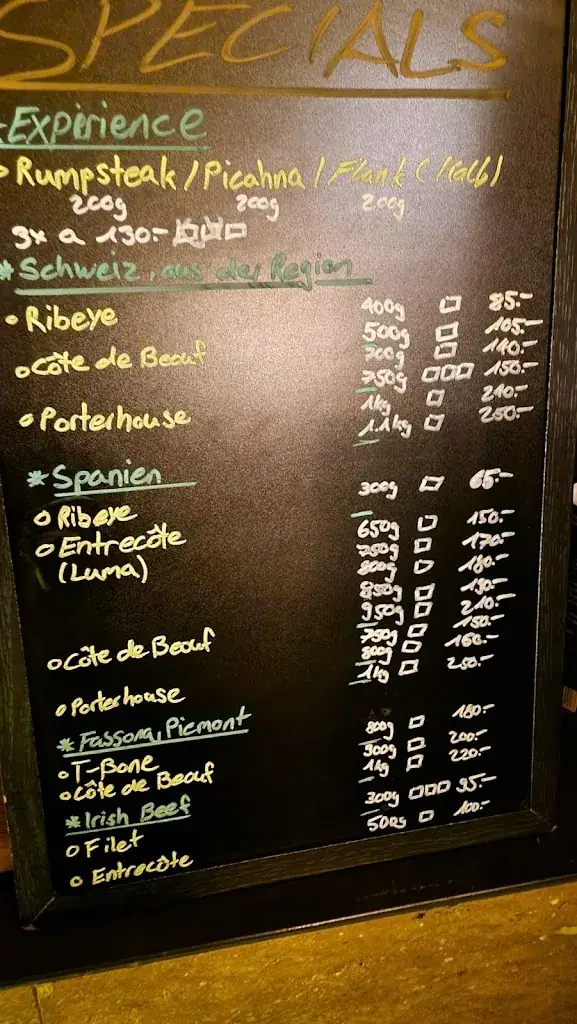 SPECIALS
-Expirience
• Rumpsteak / Picahna / Flank (Kalb)
200g 200g 200g
3x a 130.- □□□
* Schweiz, aus der Region
• Ribeye 400g □ 85.-
500g □ 105.-
• Côte de Beouf 700g □ 140.-
750g □□□ 150.-
• Porterhouse 1kg □ 240.-
1.1kg □ 250.-
* Spanien
o Ribeye 300g □ 65.-
o Entrecôte 650g □ 150.-
(Luma) 750g □ 170.-
800g □ 180.-
850g □ 190.-
950g □ 210.-
• Côte de Beouf 750g □ 150.-
800g □ 160.-
• Porterhouse 1kg □ 250.-
* Fassona, Piemont
• T-Bone 800g □ 180.-
• Côte de Beouf 900g □ 200.-
1kg □ 220.-
* Irish Beef
o Filet 300g □□□ 95.-
o Entrecôte 500g □ 100.-